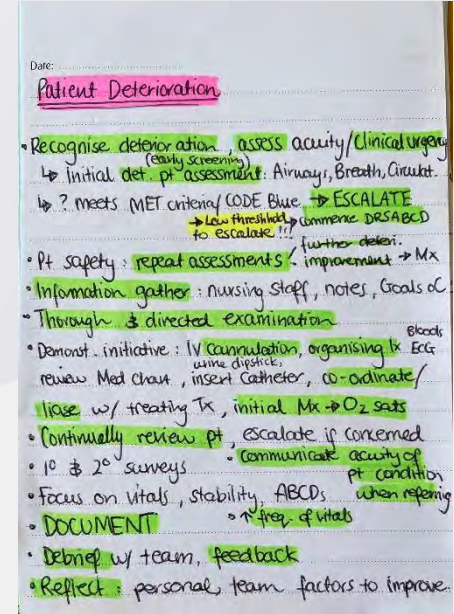 Date:
Patient Deterioration
• Recognise deterioration, assess acuity/Clinical urgency
(early screening)
↳ initial det. pt assessment: Airways, Breath, Circulat.
↳ ? meets MET criteria/CODE Blue → ESCALATE
→ Low threshhold to escalate !!!
→ commence DRSABCD
• Pt safety : repeat assessments
further deteri.
improvement → Mx
• Information gather : nursing staff, notes, Goals oC
• Thorough & directed examination
• Demonst. initiative : IV cannulation, organising Ix Bloods ECG
urine dipstick,
review Med chart, insert Catheter, co-ordinate/
liase w/ treating Tx, initial Mx → O2 sats
• Continually review pt, escalate if concerned
• 1° & 2° surveys
• communicate acuity of pt condition when refering
• Focus on vitals, stability, ABCDs
• DOCUMENT
• ↑ freq. of vitals
• Debrief w/ team, feedback
• Reflect : personal, team factors to improve.